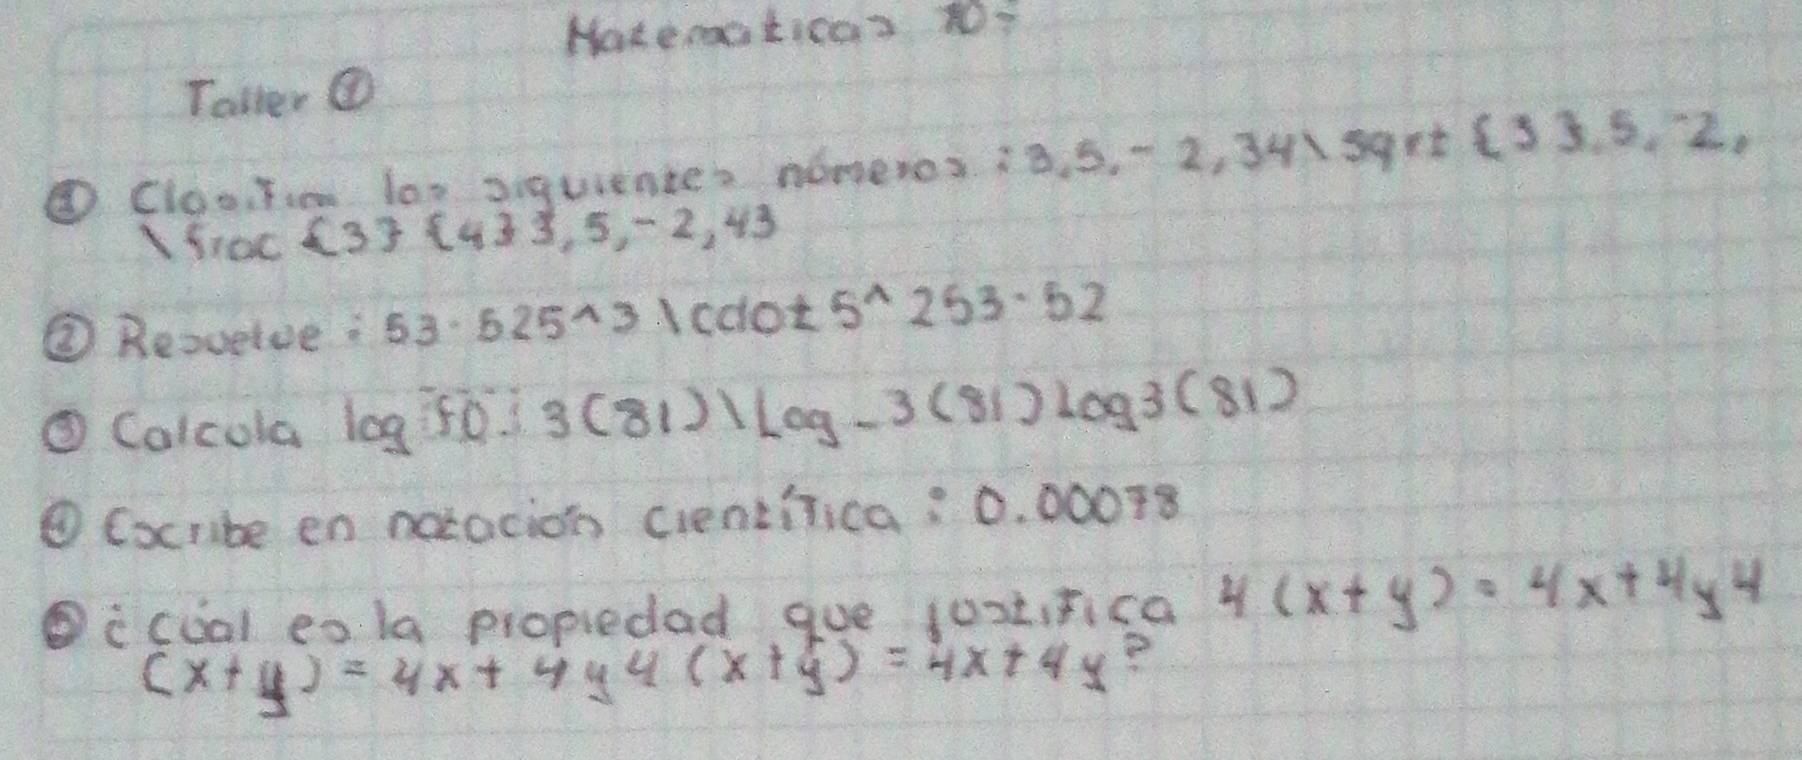 Matematicas 10-
Taller ①
① Clasifica los siguientes números : 3,5,- 2,34\sqrt {3 3,5,-2,
\frac {3} {4} 3,5,-2,43
② Resuelve : 53·525^3 \cdot 5^253·52
③ Calcula log 3(81)\Log-3(81)Log3(81)
④ Escribe en notación científica : 0.00078
⑤ ¿Cúal es la propiedad que justifica 4(x+y)=4x+4y4
(x+y)=4x+4y4(x+y)=4x+4y?